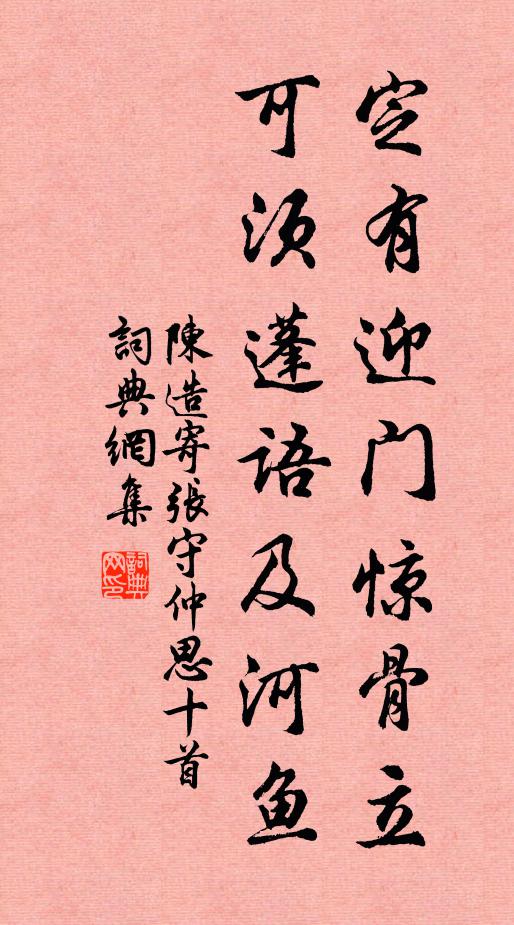 定有迎门惊骨立
可须蓬语及河鱼
陳造寄張守仲思十首
詞典網集
詞典网印